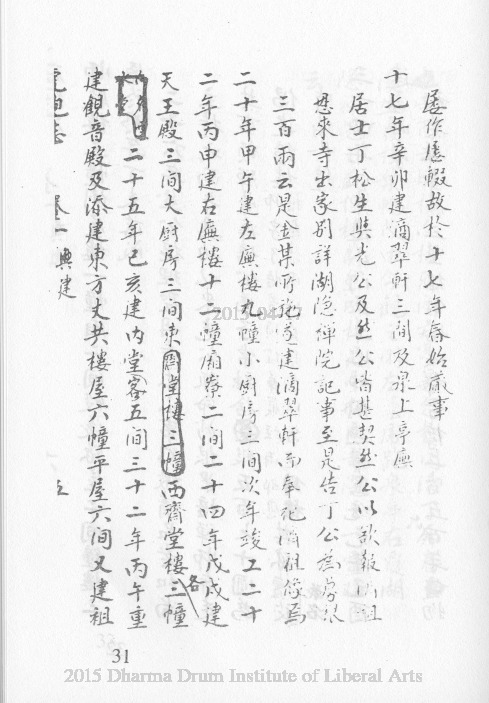 屢作屢輟故於十七年春始蕆事
十七年辛卯建滴翠軒三間及泉上亭廡
居士丁松生與尤公及然公皆甚契然公以欲報濟祖
恩來寺出家別詳湖隱禪院記事至是告丁公為募銀
三百兩云是金某所施遂建滴翠軒而奉祀濟祖像焉
二十年甲午建左廡樓九幢小廚房三間次年竣工二十
二年丙申建右廡樓十二幢廂寮二間二十四年戊戌建
天王殿三間大廚房三間東閣堂樓三幢西齋堂樓三幢
各
二十五年己亥建內堂客五間三十二年丙午重
建觀音殿及添建東方丈共樓屋六幢平屋六間又建祖
虎跑志 卷一 興建
31
2015-04-
2015 Dharma Drum Institute of Liberal Arts